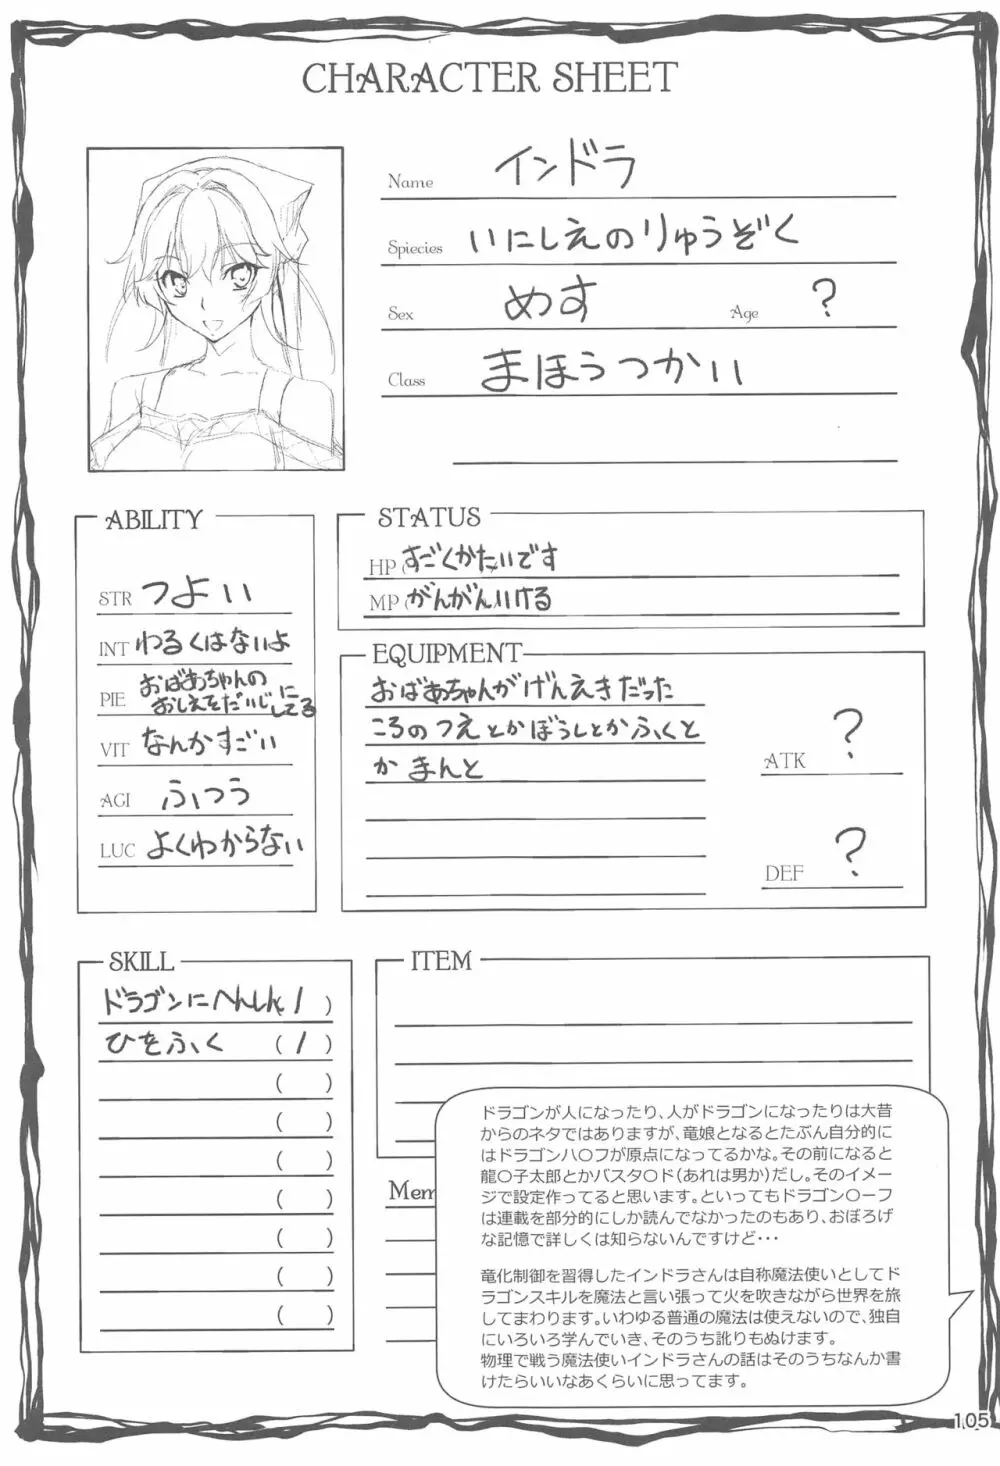 CHARACTER SHEET
Name インドラ
Spiecies いにしえのりゅうぞく
Sex めす Age ?
Class まほうつかい
ABILITY
STR つよい
INT わるくはないよ
PIE おばあちゃんの
おしえをだいじにしてる
VIT なんかすごい
AGI ふつう
LUC よくわからない
STATUS
HP( すごくかたいです
MP( がんがんいける
EQUIPMENT
おばあちゃんがげんえきだった
ころのつえとかぼうしとかふくと
かまんと
ATK ?
DEF ?
SKILL
ドラゴンにへんしん(1)
ひをふく (1)
( )
( )
( )
( )
( )
( )
( )
ITEM
Mem
ドラゴンが人になったり、人がドラゴンになったりは大昔
からのネタではありますが、竜娘となるとたぶん自分的に
はドラゴンハ〇フが原点になってるかな。その前になると
龍〇子太郎とかバスタ〇ド(あれは男か)だし。そのイメー
ジで設定作ってると思います。といってもドラゴン〇ーフ
は連載を部分的にしか読んでなかったのもあり、おぼろげ
な記憶で詳しくは知らないんですけど・・・
竜化制御を習得したインドラさんは自称魔法使いとしてド
ラゴンスキルを魔法と言い張って火を吹きながら世界を旅
してまわります。いわゆる普通の魔法は使えないので、独自
にいろいろ学んでいき、そのうち訛りもぬけます。
物理で戦う魔法使いインドラさんの話はそのうちなんか書
けたらいいなあくらいに思ってます。
105